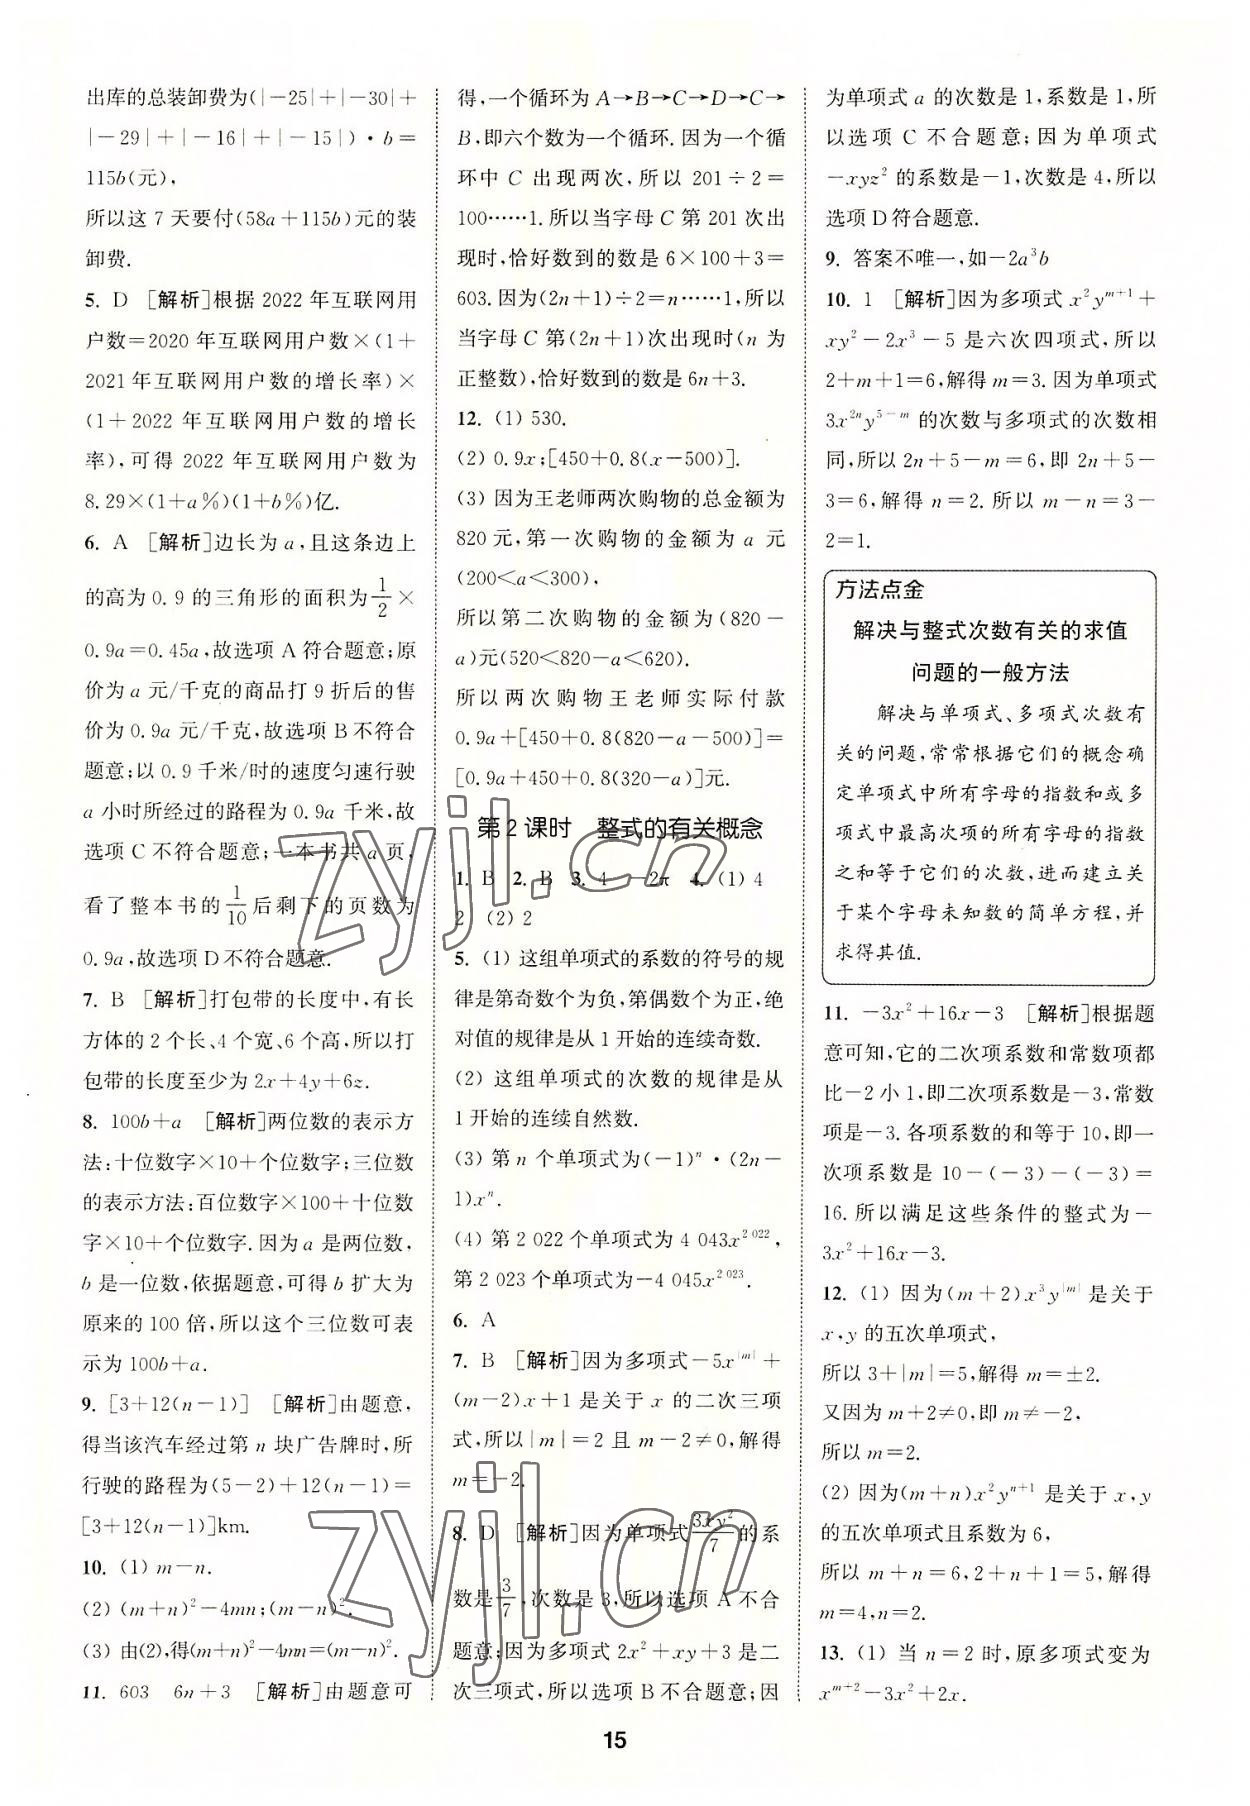 出库的总装卸费为(|-25|+|-30|+
|-29|+|-16|+|-15|)·b=
115b(元),
所以这 7 天要付(58a+115b)元的装
卸费.
5. D [解析]根据 2022 年互联网用
户数=2020 年互联网用户数×(1+
2021 年互联网用户数的增长率)×
(1+2022 年互联网用户数的增长
率),可得 2022 年互联网用户数为
8.29×(1+a%)(1+b%)亿.
6. A [解析]边长为 a,且这条边上
的高为 0.9 的三角形的面积为1/2×
0.9a=0.45a,故选项 A 符合题意;原
价为 a 元/千克的商品打 9 折后的售
价为 0.9a 元/千克,故选项 B 不符合
题意;以 0.9 千米/时的速度匀速行驶
a 小时所经过的路程为 0.9a 千米,故
选项 C 不符合题意;一本书共 a 页,
看了整本书的1/10后剩下的页数为
0.9a,故选项 D 不符合题意.
7. B [解析]打包带的长度中,有长
方体的 2 个长、4 个宽、6 个高,所以打
包带的长度至少为 2x+4y+6z.
8. 100b+a [解析]两位数的表示方
法:十位数字×10+个位数字;三位数
的表示方法:百位数字×100+十位数
字×10+个位数字.因为 a 是两位数,
b 是一位数,依据题意,可得 b 扩大为
原来的 100 倍,所以这个三位数可表
示为 100b+a.
9. [3+12(n-1)] [解析]由题意,
得当该汽车经过第 n 块广告牌时,所
行驶的路程为(5-2)+12(n-1)=
[3+12(n-1)]km.
10. (1) m-n.
(2) (m+n)²-4mn;(m-n)².
(3) 由(2),得(m+n)²-4mn=(m-n)².
11. 603 6n+3 [解析]由题意可
得,一个循环为 A→B→C→D→C→
B,即六个数为一个循环.因为一个循
环中 C 出现两次,所以 201÷2=
100……1.所以当字母 C 第 201 次出
现时,恰好数到的数是 6×100+3=
603.因为(2n+1)÷2=n……1,所以
当字母 C 第(2n+1)次出现时(n 为
正整数),恰好数到的数是 6n+3.
12. (1) 530.
(2) 0.9x;[450+0.8(x-500)].
(3) 因为王老师两次购物的总金额为
820 元,第一次购物的金额为 a 元
(200<a<300),
所以第二次购物的金额为(820-
a)元(520<820-a<620).
所以两次购物王老师实际付款
0.9a+[450+0.8(820-a-500)]=
[0.9a+450+0.8(320-a)]元.
第 2 课时 整式的有关概念
1. B 2. B 3. 4 -2π 4. (1) 4
2 (2) 2
5. (1) 这组单项式的系数的符号的规
律是第奇数个为负,第偶数个为正,绝
对值的规律是从 1 开始的连续奇数.
(2) 这组单项式的次数的规律是从
1 开始的连续自然数.
(3) 第 n 个单项式为(-1)ⁿ·(2n-
1)xⁿ.
(4) 第 2 022 个单项式为 4 043x^{2 022},
第 2 023 个单项式为-4 045x^{2 023}.
6. A
7. B [解析]因为多项式-5x^{|m|}+
(m-2)x+1 是关于 x 的二次三项
式,所以|m|=2 且 m-2≠0,解得
m=-2.
8. D [解析]因为单项式3xy²/7的系
数是3/7,次数是 3,所以选项 A 不合
题意;因为多项式 2x²+xy+3 是二
次三项式,所以选项 B 不合题意;因
为单项式 a 的次数是 1,系数是 1,所
以选项 C 不合题意;因为单项式
-xyz² 的系数是-1,次数是 4,所以
选项 D 符合题意.
9. 答案不唯一,如-2a³b
10. 1 [解析]因为多项式 x²y^{m+1}+
xy²-2x³-5 是六次四项式,所以
2+m+1=6,解得 m=3.因为单项式
3x^{2n}y^{5-m} 的次数与多项式的次数相
同,所以 2n+5-m=6,即 2n+5-
3=6,解得 n=2.所以 m-n=3-
2=1.
方法点金
解决与整式次数有关的求值
问题的一般方法
解决与单项式、多项式次数有
关的问题,常常根据它们的概念确
定单项式中所有字母的指数和或多
项式中最高次项的所有字母的指数
之和等于它们的次数,进而建立关
于某个字母未知数的简单方程,并
求得其值.
11. -3x²+16x-3 [解析]根据题
意可知,它的二次项系数和常数项都
比-2 小 1,即二次项系数是-3,常数
项是-3.各项系数的和等于 10,即一
次项系数是 10-(-3)-(-3)=
16.所以满足这些条件的整式为-
3x²+16x-3.
12. (1) 因为(m+2)x³y^{|m|}是关于
x,y 的五次单项式,
所以 3+|m|=5,解得 m=±2.
又因为 m+2≠0,即 m≠-2,
所以 m=2.
(2) 因为(m+n)x²y^{n+1} 是关于 x,y
的五次单项式且系数为 6,
所以 m+n=6,2+n+1=5,解得
m=4,n=2.
13. (1) 当 n=2 时,原多项式变为
x^{m+2}-3x²+2x.
15
zyjl.cn
zyjl.cn